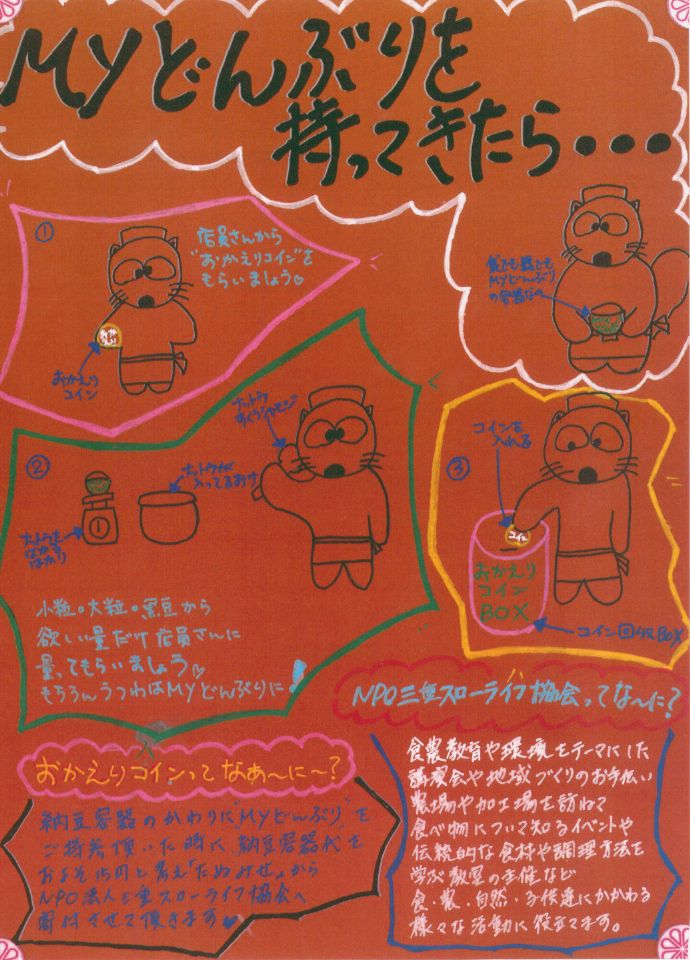 MYどんぶりを
持ってきたら・・・
①
店員さんから
"おかえりコイン"を
もらいましょう
おかえり
コイン
MYどんぶり
の容器なの
②
ナットウ
すくうシャモジ
ナットウが
入ってるおけ
ナットウを
はかる
はかり
小粒。大粒。黒豆から
欲しい量だけ店員さんに
量ってもらいましょう
もちろんうつわはMYどんぶりに!
③
コインを
入れる
コイン
おかえり
コイン
BOX
コイン回収BOX
おかえりコインってなぁ〜に〜?
納豆容器のかわりに"MYどんぶり"を
ご持参頂いた時に、納豆容器代を
およそ15円と考え「たぬみせ」から
NPO法人三重スローライフ協会へ
寄付させて頂きます
NPO三重スローライフ協会ってな〜に?
食農教育や環境をテーマにした
講演会や地域づくりのお手伝い
農場や加工場を訪ねて
食べ物について知るイベントや
伝統的な食材や調理方法を
学ぶ教室の手催など
食・農・自然・子供達にかかわる
様々な活動に役立てます。